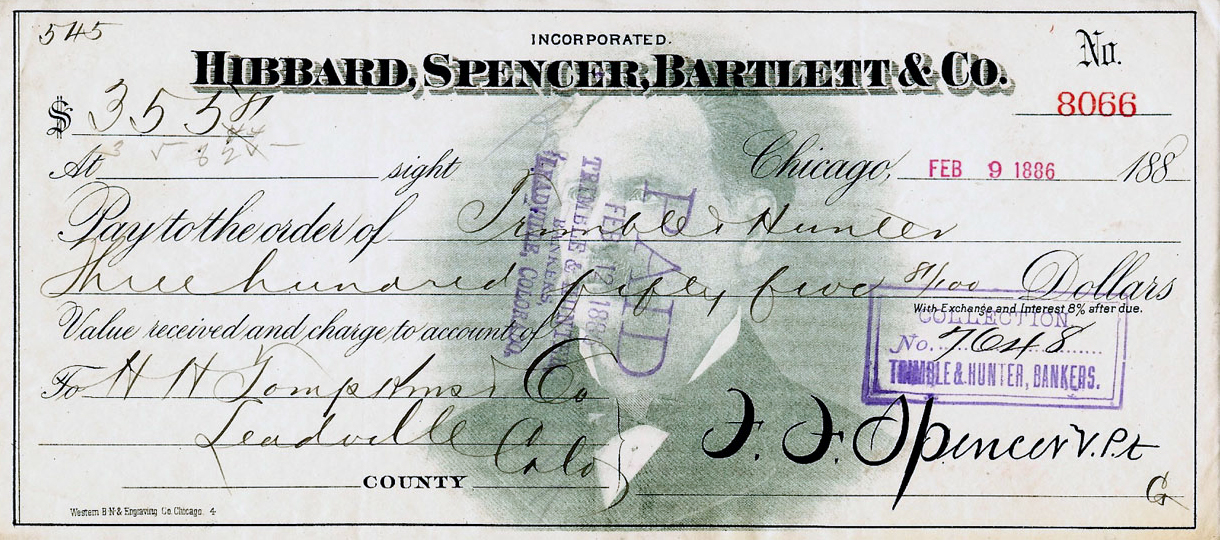 545
INCORPORATED.
HIBBARD, SPENCER, BARTLETT & CO.
No.
8066
$ 355 81
At sight Chicago, FEB 9 1886 188
Pay to the order of Trimble & Hunter
Three hundred fifty five 81/100 Dollars
With Exchange and Interest 8% after due.
Value received and charge to account of
To H H Tompkins & Co
Leadville Colo
COUNTY
F. F. Spencer V. Pt
G
Western B N & Engraving Co. Chicago. 4
PAID
FEB 12 188
TRIMBLE & HUNTER
BANKERS
LEADVILLE, COLORADO.
COLLECTION.
No. 7648
TRIMBLE & HUNTER, BANKERS.